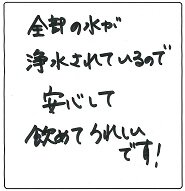 全部の水が
浄水されているので
安心して
飲めてうれしい
です!